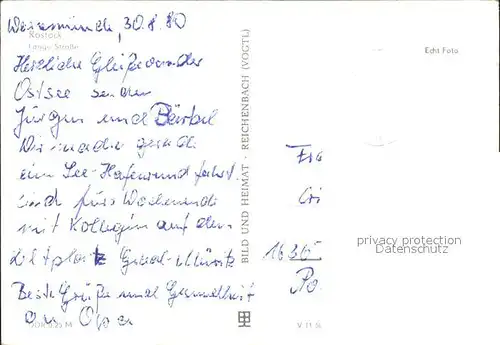 Warnemünde, 30.8.80
Rostock
Lange Straße
Herzliche Grüße von der
Ostsee senden
Jürgen und Bärbel
Wir machen gerade
ein See-Hafenrundfahrt
und fürs Wochenende
mit Kollegin auf dem
Zeltplatz Graal-Müritz
Beste Grüße und Gesundheit
an Opa
BILD UND HEIMAT · REICHENBACH (VOGTL)
Echt Foto
privacy protection
Datenschutz
1630
V 11